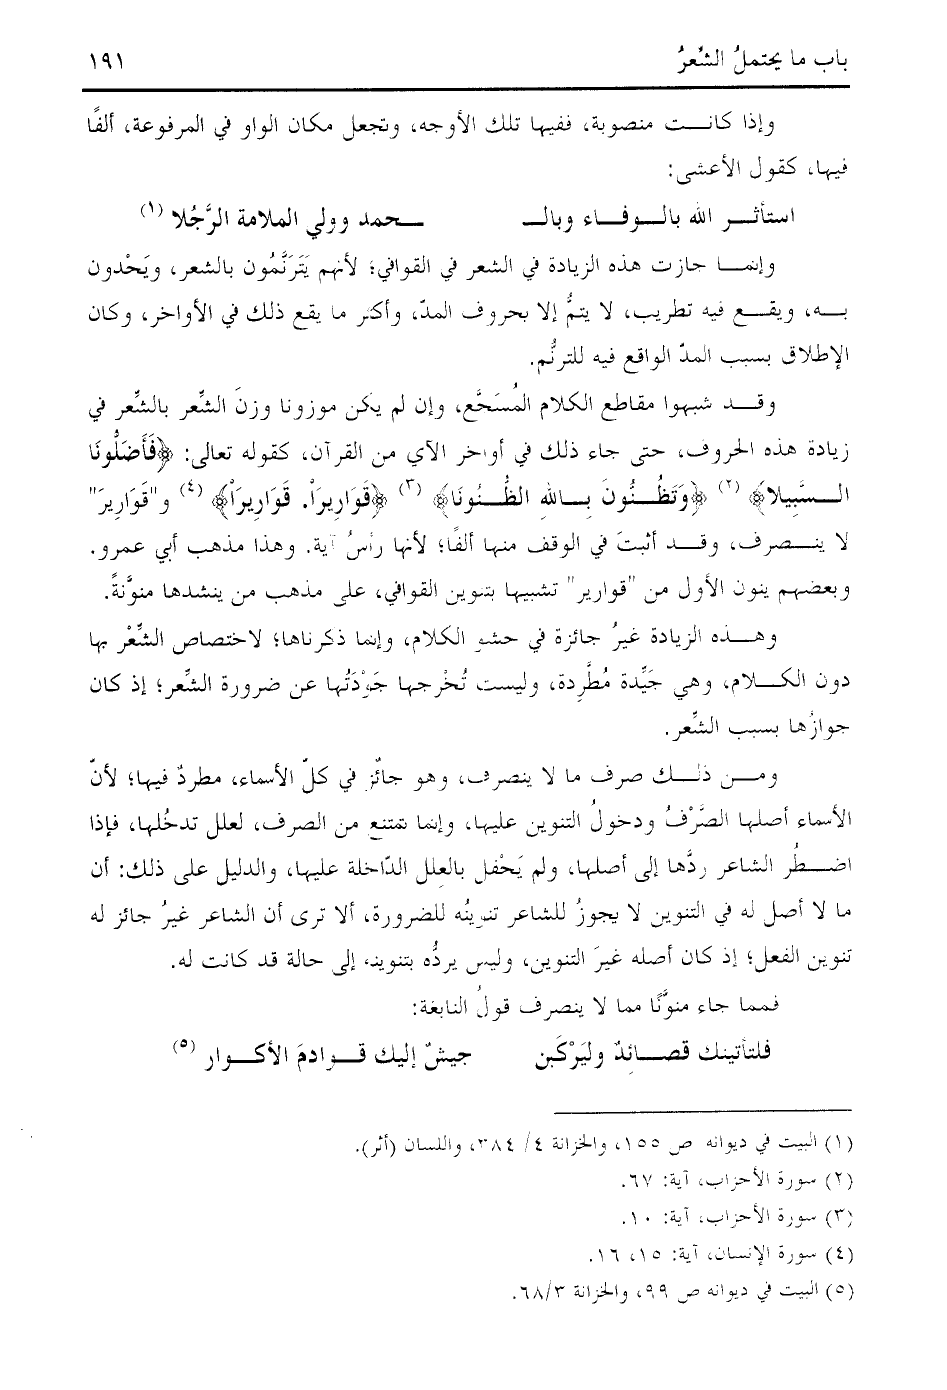 باب ما يحتملُ الشعرُ ١٩١
وإذا كانت منصوبة، ففيها تلك الأوجه، وتجعل مكان الواو في المرفوعة، ألفًا
فيها، كقول الأعشى:
استأثر الله بالوفاء وبالـ ـحمد وولي الملامة الرَّجُلا (١)
وإنما جازت هذه الزيادة في الشعر في القوافي؛ لأنهم يَتَرَنَّمُون بالشعر، ويَحْدون
به، ويقع فيه تطريب، لا يتمُّ إلا بحروف المدّ، وأكثر ما يقع ذلك في الأواخر، وكان
الإطلاق بسبب المدّ الواقع فيه للترنُّم.
وقد شبهوا مقاطع الكلام المُسَجَّع، وإن لم يكن موزونا وزنَ الشِّعر بالشِّعر في
زيادة هذه الحروف، حتى جاء ذلك في أواخر الآي من القرآن، كقوله تعالى: ﴿فَأَضَلُّونَا
السَّبِيلا﴾ (٢) ﴿وَتَظُنُّونَ بِاللهِ الظُّنُونَا﴾ (٣) ﴿قَوَارِيرَاْ. قَوَارِيرَاْ﴾ (٤) و"قَوَارِيرَ"
لا ينصرف، وقد أثبتَ في الوقف منها ألفًا؛ لأنها رأسُ آية. وهذا مذهب أبي عمرو.
وبعضهم ينون الأول من "قوارير" تشبيها بتنوين القوافي، على مذهب من ينشدها منوَّنةً.
وهذه الزيادة غيرُ جائزة في حشو الكلام، وإنما ذكرناها؛ لاختصاص الشِّعْر بها
دون الكلام، وهي جَيِّدة مُطَّرِدة، وليست تُخْرجها جَوْدَتُها عن ضرورة الشِّعر؛ إذ كان
جوازُها بسبب الشِّعر.
ومن ذلك صرف ما لا ينصرف، وهو جائز في كلّ الأسماء، مطردٌ فيها؛ لأنّ
الأسماء أصلها الصَّرْفُ ودخولُ التنوين عليها، وإنما تمتنع من الصرف، لعلل تدخُلها، فإذا
اضطُر الشاعر ردَّها إلى أصلها، ولم يَحْفِل بالعلل الدّاخلة عليها، والدليل على ذلك: أن
ما لا أصل له في التنوين لا يجوزُ للشاعر تنوينُه للضرورة، ألا ترى أن الشاعر غيرُ جائز له
تنوين الفعل؛ إذ كان أصله غيرَ التنوين، وليس يردُّه بتنوينه إلى حالة قد كانت له.
فمما جاء منوَّنًا مما لا ينصرف قولُ النابغة:
فلتأتينك قصائدٌ وليَرْكَبن جيشٌ إليك قوادمَ الأكوار (٥)
(١) البيت في ديوانه ص ١٥٥، والخزانة ٤/ ٣٨٤، واللسان (أثر).
(٢) سورة الأحزاب، آية: ٦٧.
(٣) سورة الأحزاب، آية: ١٠.
(٤) سورة الإنسان، آية: ١٥، ١٦.
(٥) البيت في ديوانه ص ٩٩، والخزانة ٦٨/٣.